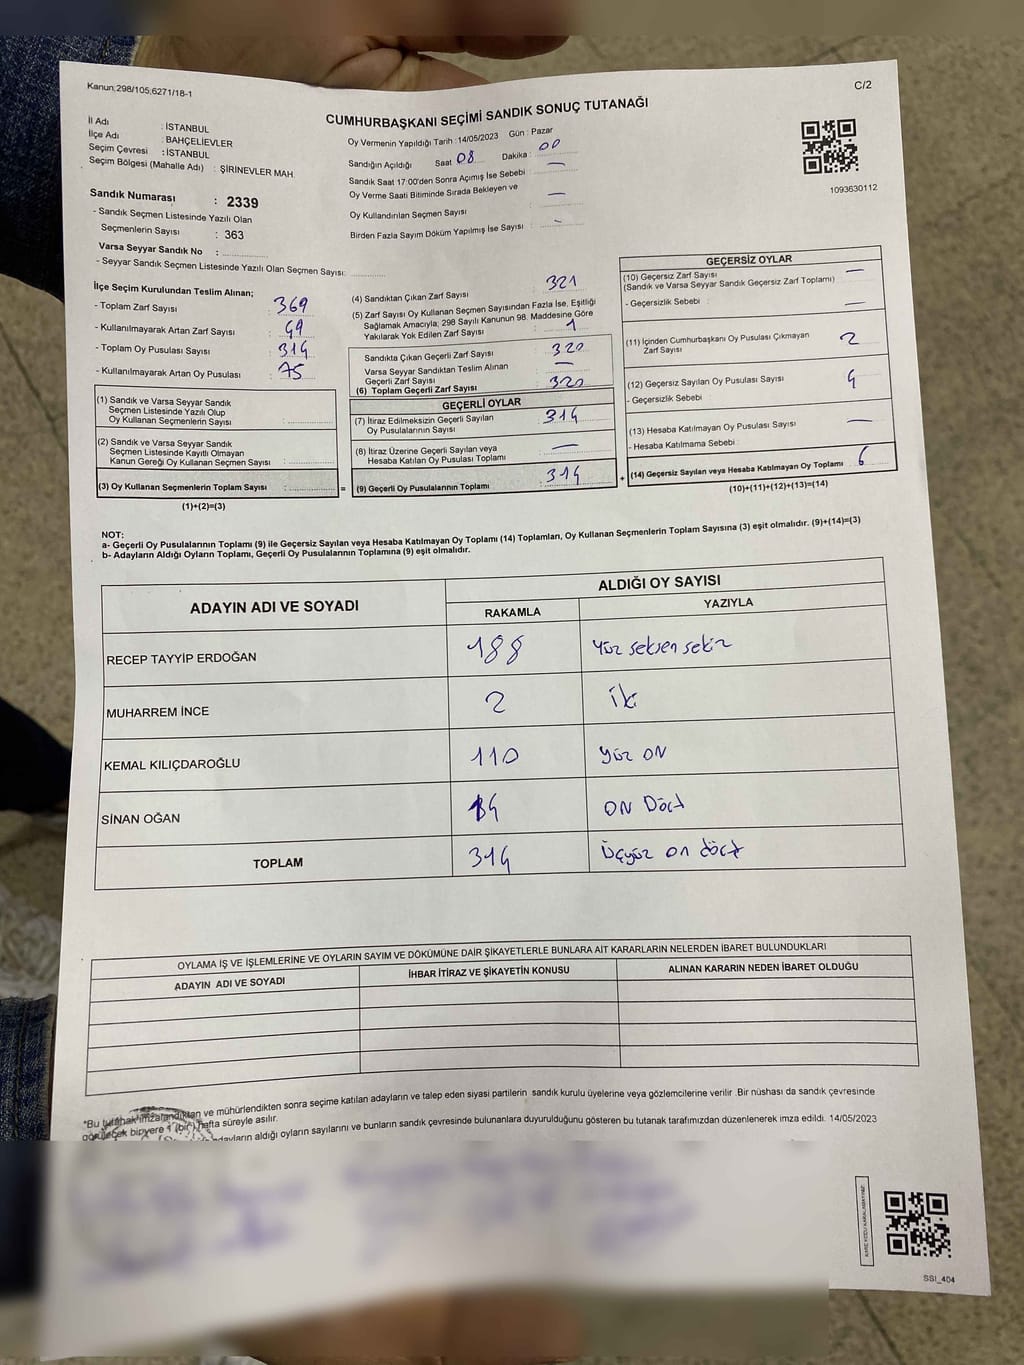 Kanun;298/105;6271/18-1
C/2
CUMHURBAŞKANI SEÇİMİ SANDIK SONUÇ TUTANAĞI
İl Adı : İSTANBUL
İlçe Adı : BAHÇELİEVLER
Seçim Çevresi : İSTANBUL
Seçim Bölgesi (Mahalle Adı) : ŞİRİNEVLER MAH.
Sandık Numarası : 2339
- Sandık Seçmen Listesinde Yazılı Olan
Seçmenlerin Sayısı : 363
Varsa Seyyar Sandık No :
- Seyyar Sandık Seçmen Listesinde Yazılı Olan Seçmen Sayısı:
Oy Vermenin Yapıldığı Tarih :14/05/2023 Gün : Pazar
Sandığın Açıldığı Saat 08 Dakika : 00
Sandık Saat 17:00'den Sonra Açımış İse Sebebi : —
Oy Verme Saati Bitiminde Sırada Bekleyen ve
Oy Kullandırılan Seçmen Sayısı : —
Birden Fazla Sayım Döküm Yapılmış İse Sayısı : -
1093630112
İlçe Seçim Kurulundan Teslim Alınan;
- Toplam Zarf Sayısı : 369
- Kullanılmayarak Artan Zarf Sayısı : 49
- Toplam Oy Pusulası Sayısı : 314
- Kullanılmayarak Artan Oy Pusulası : 75
(1) Sandık ve Varsa Seyyar Sandık
Seçmen Listesinde Yazılı Olup
Oy Kullanan Seçmenlerin Sayısı :
(2) Sandık ve Varsa Seyyar Sandık
Seçmen Listesinde Kayıtlı Olmayan
Kanun Gereği Oy Kullanan Seçmen Sayısı :
(3) Oy Kullanan Seçmenlerin Toplam Sayısı : =
(1)+(2)=(3)
(4) Sandıktan Çıkan Zarf Sayısı : 321
(5) Zarf Sayısı Oy Kullanan Seçmen Sayısından Fazla İse, Eşitliği
Sağlamak Amacıyla; 298 Sayılı Kanunun 98. Maddesine Göre
Yakılarak Yok Edilen Zarf Sayısı : 1
Sandıkta Çıkan Geçerli Zarf Sayısı : 320
Varsa Seyyar Sandıktan Teslim Alınan
Geçerli Zarf Sayısı : —
(6) Toplam Geçerli Zarf Sayısı : 320
GEÇERLİ OYLAR
(7) İtiraz Edilmeksizin Geçerli Sayılan
Oy Pusulalarının Sayısı : 314
(8) İtiraz Üzerine Geçerli Sayılan veya
Hesaba Katılan Oy Pusulası Toplamı : —
(9) Geçerli Oy Pusulalarının Toplamı : 314 +
GEÇERSİZ OYLAR
(10) Geçersiz Zarf Sayısı : —
(Sandık ve Varsa Seyyar Sandık Geçersiz Zarf Toplamı)
- Geçersizlik Sebebi : —
(11) İçinden Cumhurbaşkanı Oy Pusulası Çıkmayan
Zarf Sayısı : 2
(12) Geçersiz Sayılan Oy Pusulası Sayısı : 4
- Geçersizlik Sebebi :
(13) Hesaba Katılmayan Oy Pusulası Sayısı : —
- Hesaba Katılmama Sebebi :
(14) Geçersiz Sayılan veya Hesaba Katılmayan Oy Toplamı : 6
(10)+(11)+(12)+(13)=(14)
NOT:
a- Geçerli Oy Pusulalarının Toplamı (9) ile Geçersiz Sayılan veya Hesaba Katılmayan Oy Toplamı (14) Toplamları, Oy Kullanan Seçmenlerin Toplam Sayısına (3) eşit olmalıdır. (9)+(14)=(3)
b- Adayların Aldığı Oyların Toplamı, Geçerli Oy Pusulalarının Toplamına (9) eşit olmalıdır.
ADAYIN ADI VE SOYADI
ALDIĞI OY SAYISI
RAKAMLA YAZIYLA
RECEP TAYYİP ERDOĞAN 188 Yüz seksen sekiz
MUHARREM İNCE 2 iki
KEMAL KILIÇDAROĞLU 110 yüz ON
SİNAN OĞAN 14 ON Dört
TOPLAM 314 Üçyüz on dört
OYLAMA İŞ VE İŞLEMLERİNE VE OYLARIN SAYIM VE DÖKÜMÜNE DAİR ŞİKAYETLERLE BUNLARA AİT KARARLARIN NELERDEN İBARET BULUNDUKLARI
ADAYIN ADI VE SOYADI İHBAR İTİRAZ VE ŞİKAYETİN KONUSU ALINAN KARARIN NEDEN İBARET OLDUĞU
*Bu tutanak imzalandıktan ve mühürlendikten sonra seçime katılan adayların ve talep eden siyasi partilerin sandık kurulu üyelerine veya gözlemcilerine verilir .Bir nüshası da sandık çevresinde
görülecek bir yere 1 (bir) hafta süreyle asılır.
adayların aldığı oyların sayılarını ve bunların sandık çevresinde bulunanlara duyurulduğunu gösteren bu tutanak tarafımızdan düzenlenerek imza edildi. 14/05/2023
KARE KODU KARALAMAYINIZ!
SSI_404